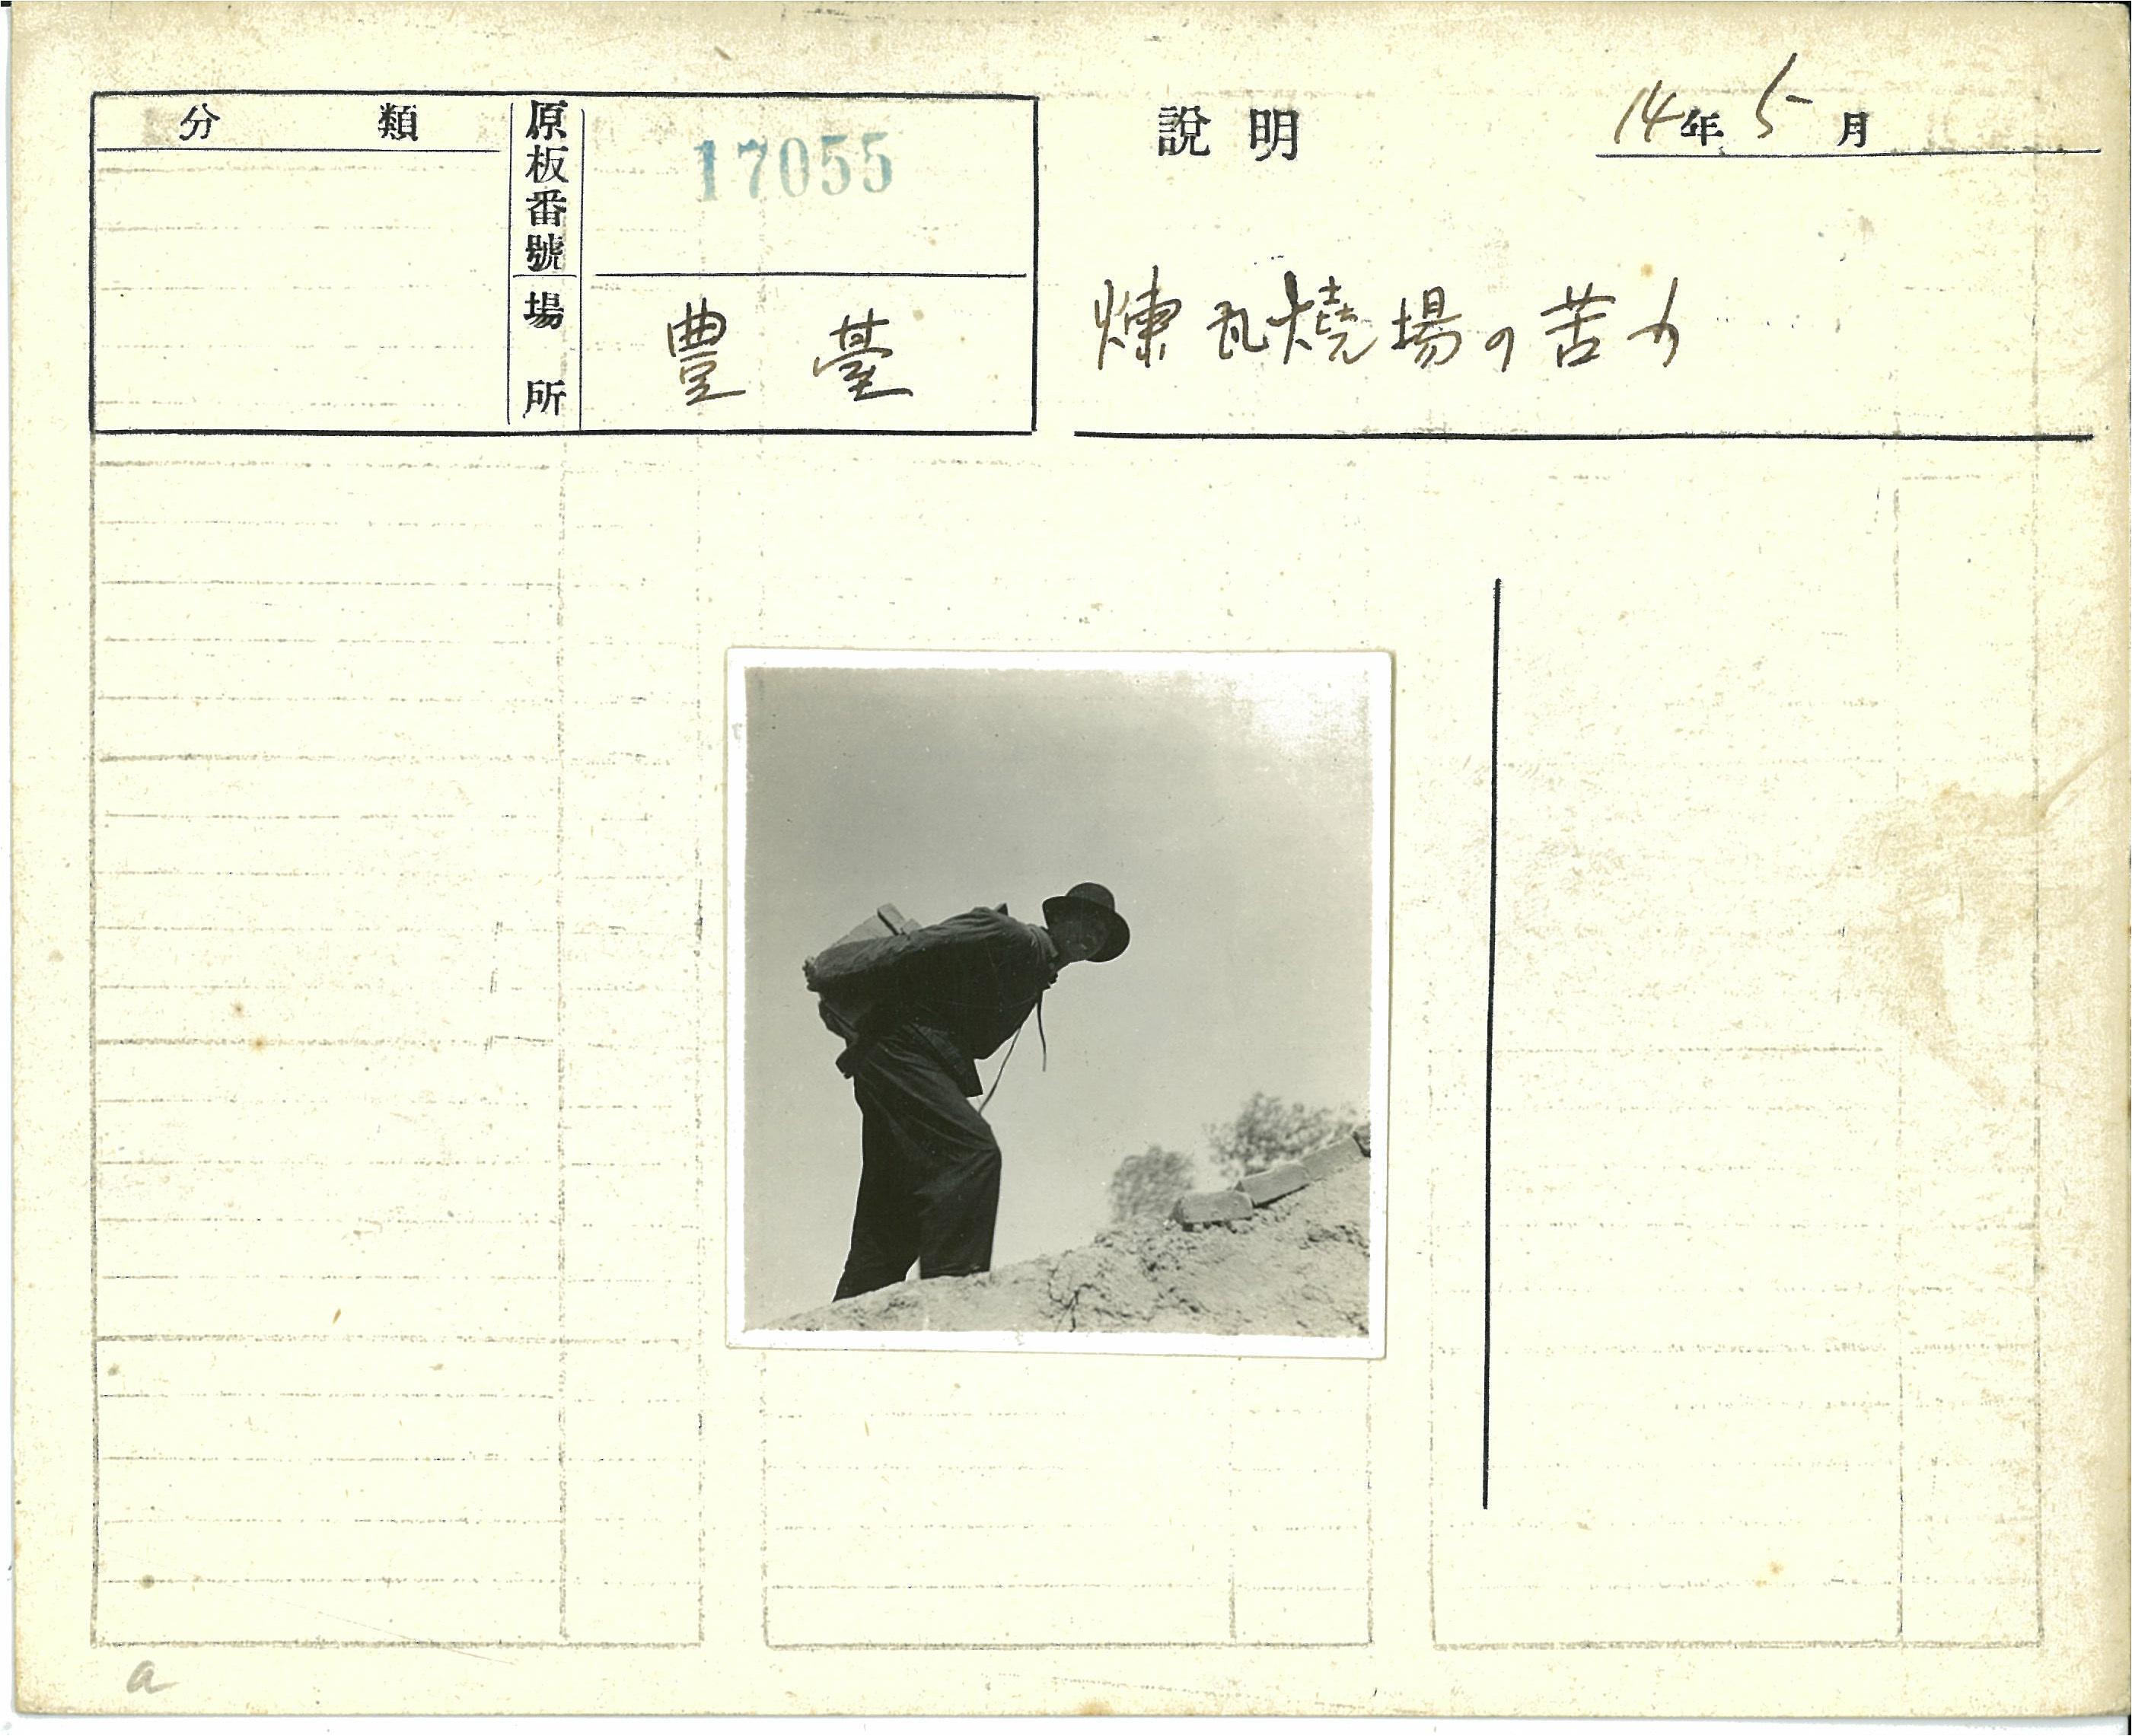 分類
原板番號
17055
場所
豊臺
說明
14年5月
煉瓦燒場の苦力
a